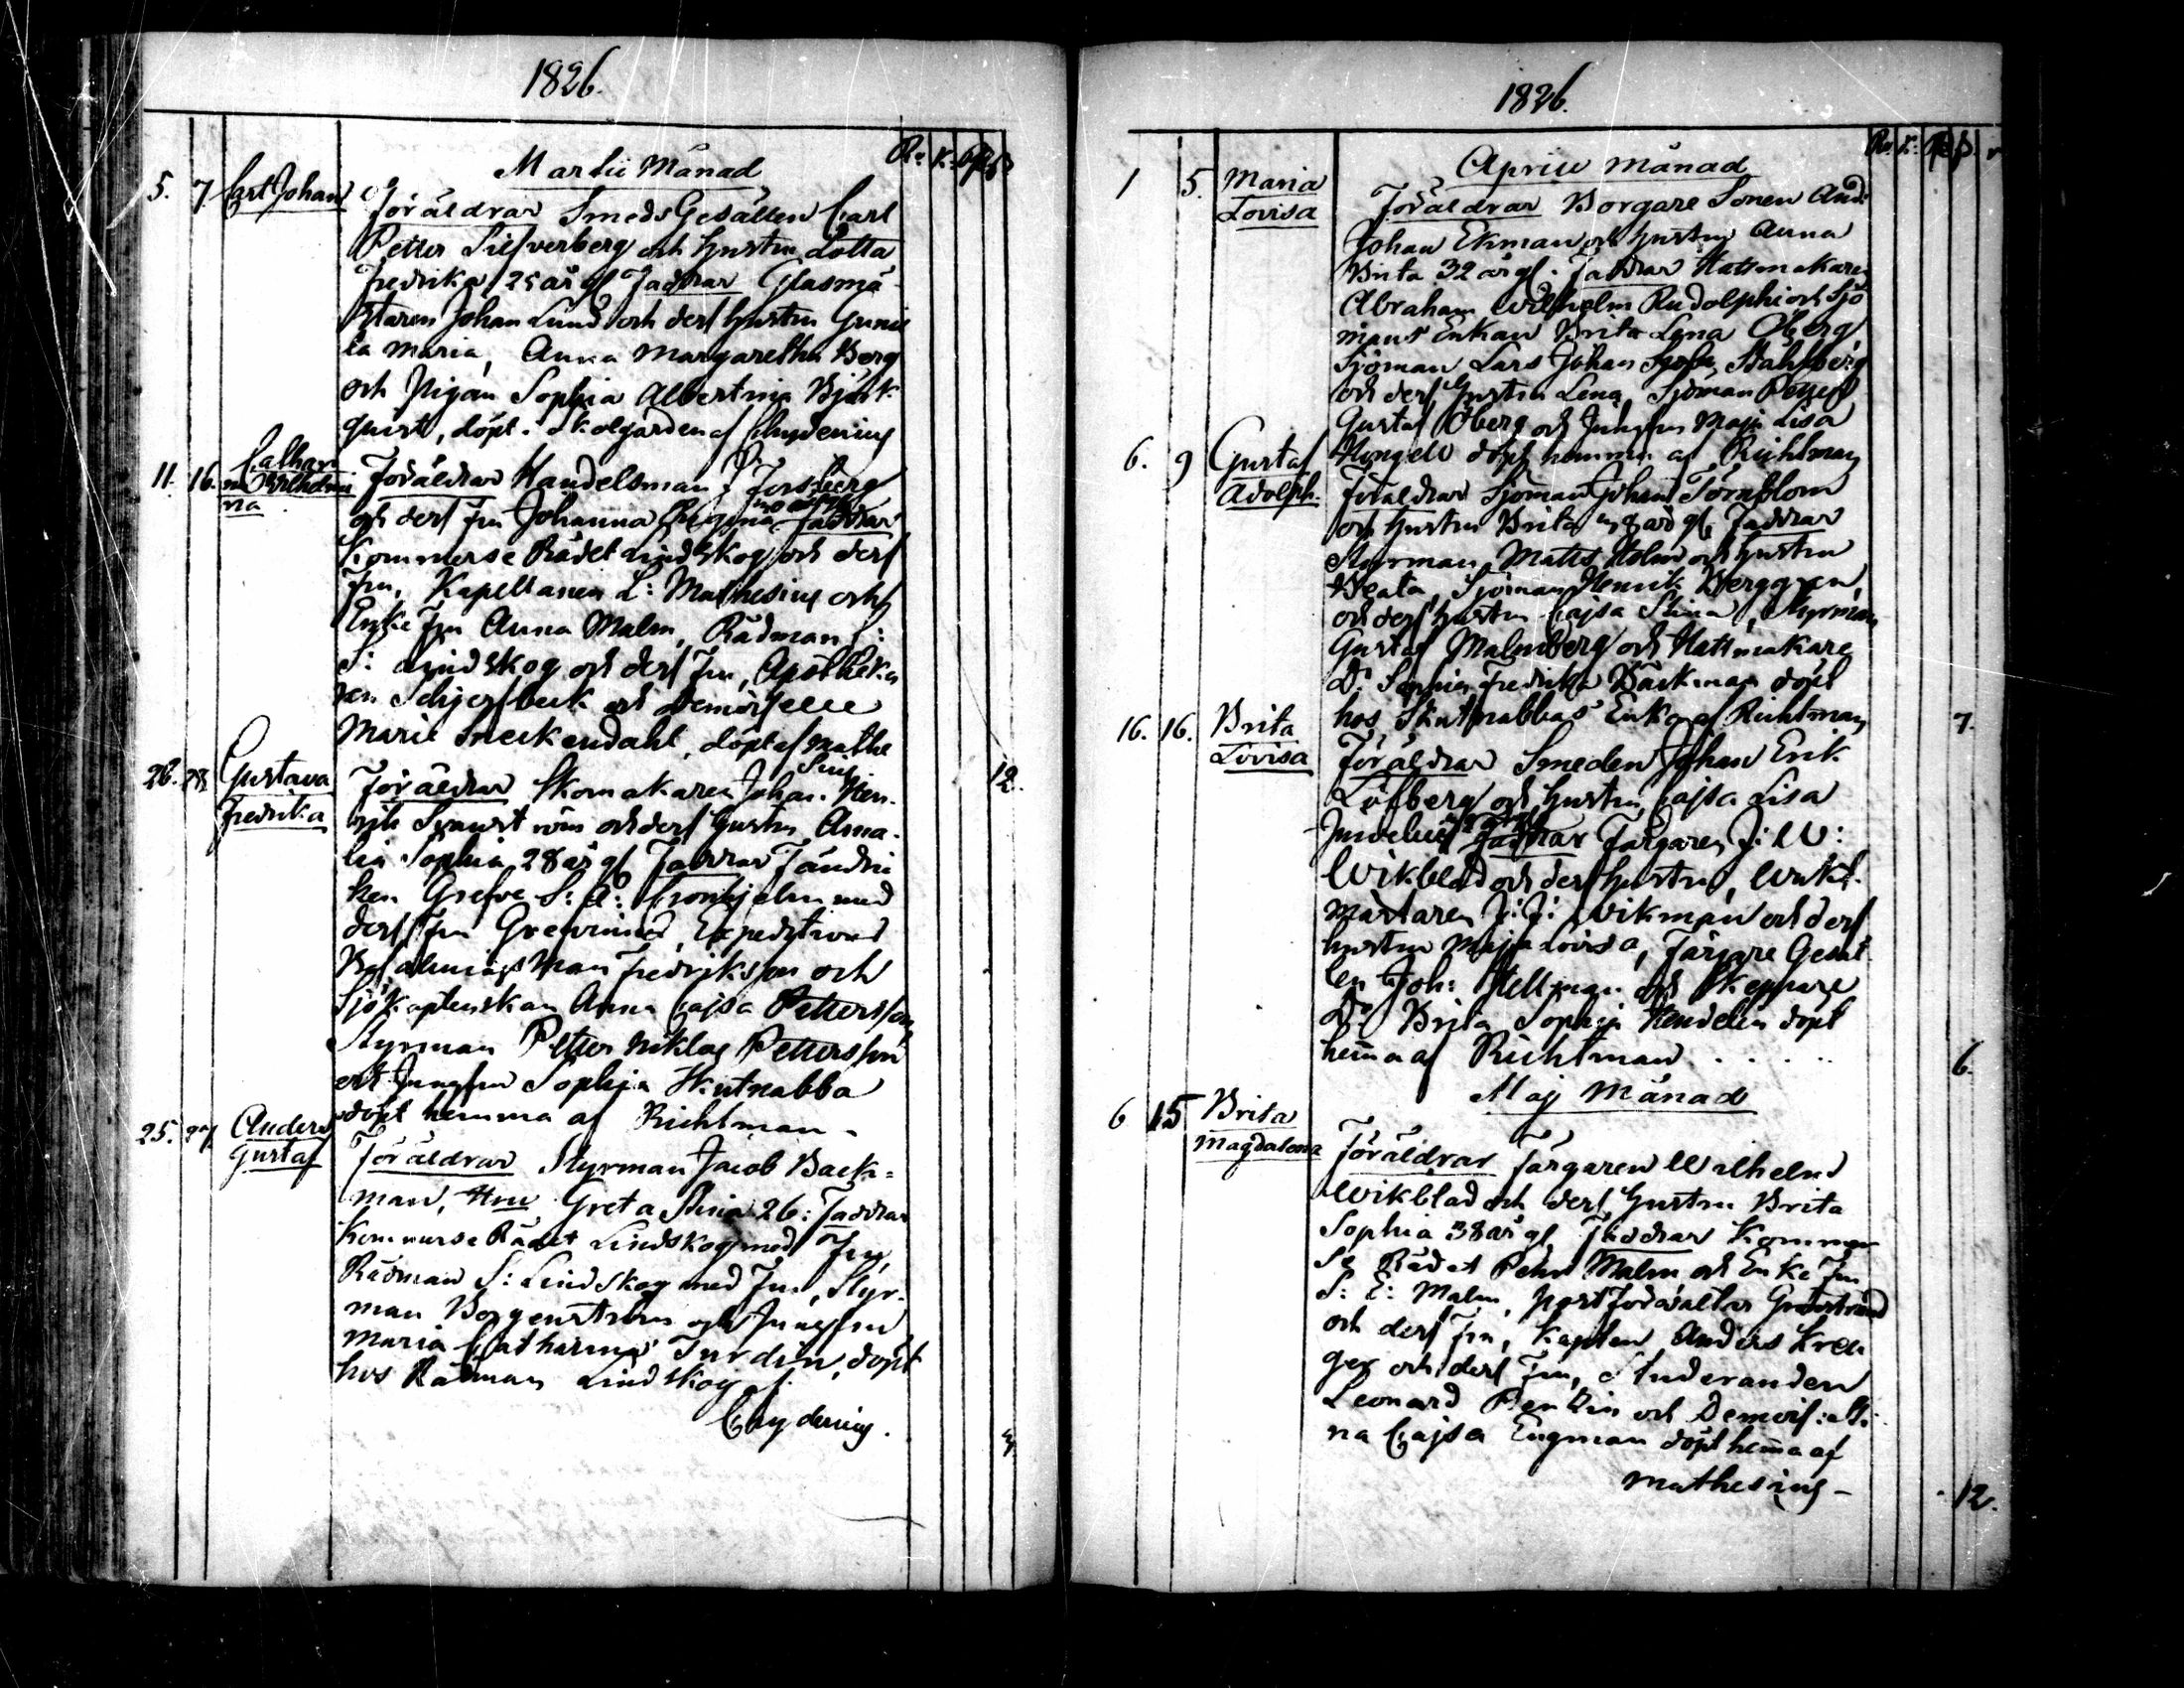 1826.
Martii Månad
5. 7 Carl Johan
Föräldrar Smeds Gesällen Carl
Petter Silfverberg och hustru Lotta
Fredrika 25 år gl Faddrar Glasmä-
staren Johan Lund och dess hustru Gunil
la Maria, Anna Margaretha Berg
och Pigan Sophia Albertina Björk-
quist, döpt i Skolgården af Chydenius
11. 16. Catharina Wilhelmina
Föräldrar Handelsman J Forsberg
och dess fru Johanna Faddrar
Kommerse Rådet Lindskog och dess
Fru, Kapellanen L: Mathesius och
Enke Fru Anna Malm, Rådman
S: Lindskog och dess Fru, Apotheka
ren och Demoiselle
Marie Sneckendahl, döpt af Mathe
sius
12.
26. 28 Gustava Fredrika
Föräldrar Skomakaren Johan Hen-
rik och dess hustru Ama-
lia Sophia 28 år gl Faddrar Fändri
ken Grefve S: A: Cronhjelm med
dess Fru Grevinnan, Expeditions
Befalnings Man Fredriksson och
Sjökaptenskan Anna Cajsa Pettersson,
Styrman Petter Niklas Pettersson
och Jungfru Sophia Skutnabba
döpt hemma af Richtman
25. 27 Anders Gustaf
Föräldrar Styrman Jacob Back-
man, Hru Greta Stina 26: Faddrar
Kommerse Rådet Lindskog med Fru,
Rådman S: Lindskog med Fru, Styr-
man Borgenström och Jungfru
Maria Catharina döpt
hos Rådman Lindskog af
Chydenius.
1826.
Aprill Månad
1 5. Maria Lovisa
Föräldrar Borgare Sonen And:
Johan Ekman och hustru Anna
Brita 32 år gl. Faddrar Hattmakaren
Abraham Wilhelm Rudolphi och Sjö
mans Enkan Brita Lena Öberg,
Sjöman Lars Johan Stahlberg
och dess hustru Lena, Sjöman Petter
Gustaf Öberg och Jungfru Maja Lisa
döpt hemma af Richtman
6. 9 Gustaf Adolph.
Föräldrar Sjöman Johan Törnblom
och hustru Brita år gl, Faddrar
Styrman Matts Holm och hustru
Beata, Sjöman Henrik Berggren,
och dess hustru Cajsa Stina, Styrman
Gustaf Malmberg och Hattmakare
D: Sophia Fredrika Backman döpt
hos Skutnabbas Enka af Richtman
7.
16. 16. Brita Lovisa
Föräldrar Smeden Johan Erik
Löfberg och hustru Cajsa Lisa
Faddrar Färgaren J: W:
Wikblad och dess hustru,
mästaren J: J: Wikman och dess
hustru Maja Lovisa, Färgare Gesäl
len Joh: Hellman och Skeppare
D: Brita Sophia döpt
hema af Richtman . . . .
6.
Maj Månad
6 15 Brita Magdalena
Föräldrar Färgaren Wilhelm
Wikblad och dess hustru Brita
Sophia 38 år gl Faddrar Kommer
se Rådet Pehr Malm och Enke Fru
S: E: Malm, Postförvaltar
och dess Fru, Kapten Anders Kreu
ger och dess Fru, Studeranden
Leonard och Demois: Sti
na Cajsa Engman döpt hema af
Mathesius –
12.